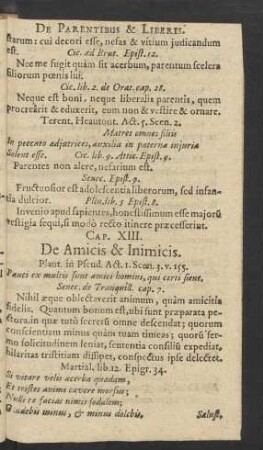 DE PARENTIBUS & LIBERIS.
starum: cui decori esse, nefas & vitium judicandum
est. Cic. ad Brut. Epist. 12.
Nec me fugit quàm sit acerbum, parentum scelera
filiorum pœnis lui.
Cic. lib. 2. de Orat. cap. 28.
Neque est boni, neque liberalis parentis, quem
procreârit & eduxerit, eum non & vestire & ornare.
Terent. Heautont. Act. 5. Scen. 2.
Matres omnes filiis
In peccato adjutrices, auxilia in paterna injuria
Solent esse. Cic. lib. 9. Attic. Epist. 9.
Parentes non alere, nefarium est.
Senec. Epist. 9.
Fructuosior est adolescentia liberorum, sed infan-
tia dulcior. Plin. lib. 5 Epist. 8.
Invenio apud sapientes, honestissimum esse majorũ
vestigia sequi, si modò recto itinere præcesserint.
CAP. XIII.
De Amicis & Inimicis.
Plaut. in Pseud. Act. 1. Scen. 3. v. 155.
Pauci ex multis sunt amici homini, qui certi sient.
Senec. de Tranquill. cap. 7.
Nihil æque oblectaverit animum, quàm amicitia
fidelis. Quantum bonum est, ubi sunt præparata pe-
ctora, in quæ tutò secretū omne descendat; quorum
conscientiam minus quàm tuam timeas; quorū ser-
mo solicitudinem leniat, sententia consiliũ expediat,
hilaritas tristitiam dissipet, conspectus ipse delectet.
Martial. lib. 12. Epigr. 34.
Si vitare velis acerba quædam,
Et tristes animi cavere morsus;
Nulli te facias nimis sodalem;
Gaudebis minus, & minus dolebis. Salust.